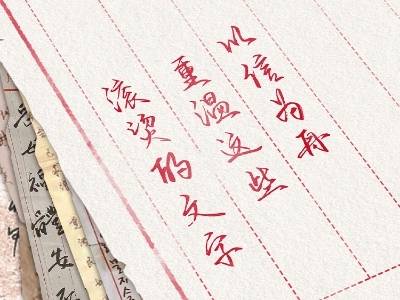 以信为舟
重温这些
滚烫的文字